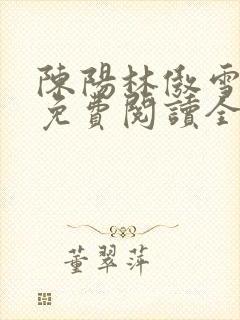 陳陽林傲雪
免費閱讀全
董翠萍